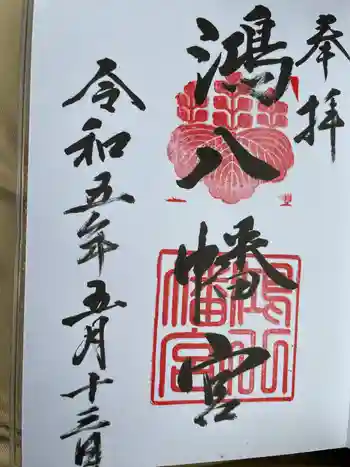 奉拝
鴻八幡宮
令和五年五月十三日
鴻八幡宮